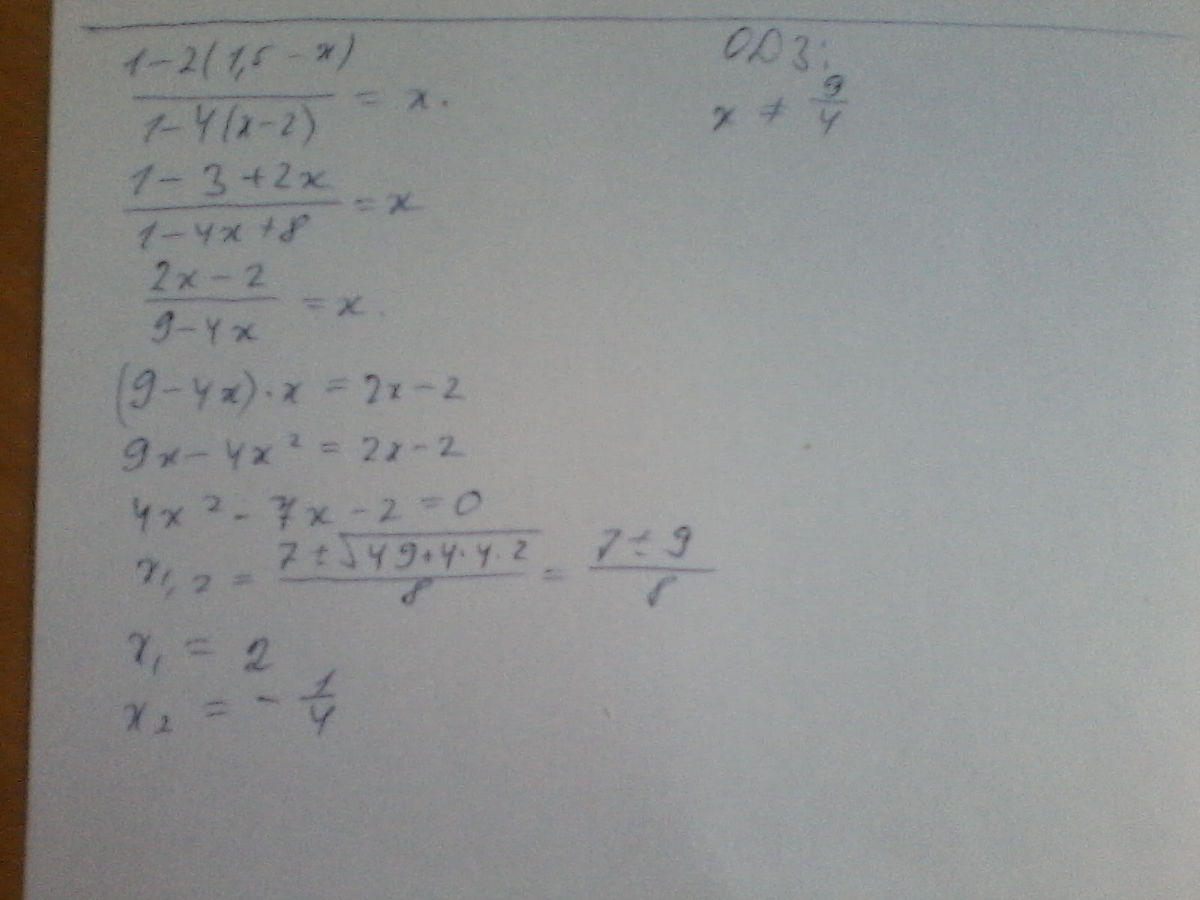 1-2(1,5-x)
――― = x.
1-4(x-2)
ОДЗ:
x ≠ 9/4
1-3+2x
――― = x
1-4x+8
2x-2
――― = x.
9-4x
(9-4x)·x = 2x-2
9x-4x² = 2x-2
4x²-7x-2=0
x₁,₂ = (7±√(49+4·4·2))/8 = (7±9)/8
x₁ = 2
x₂ = -1/4